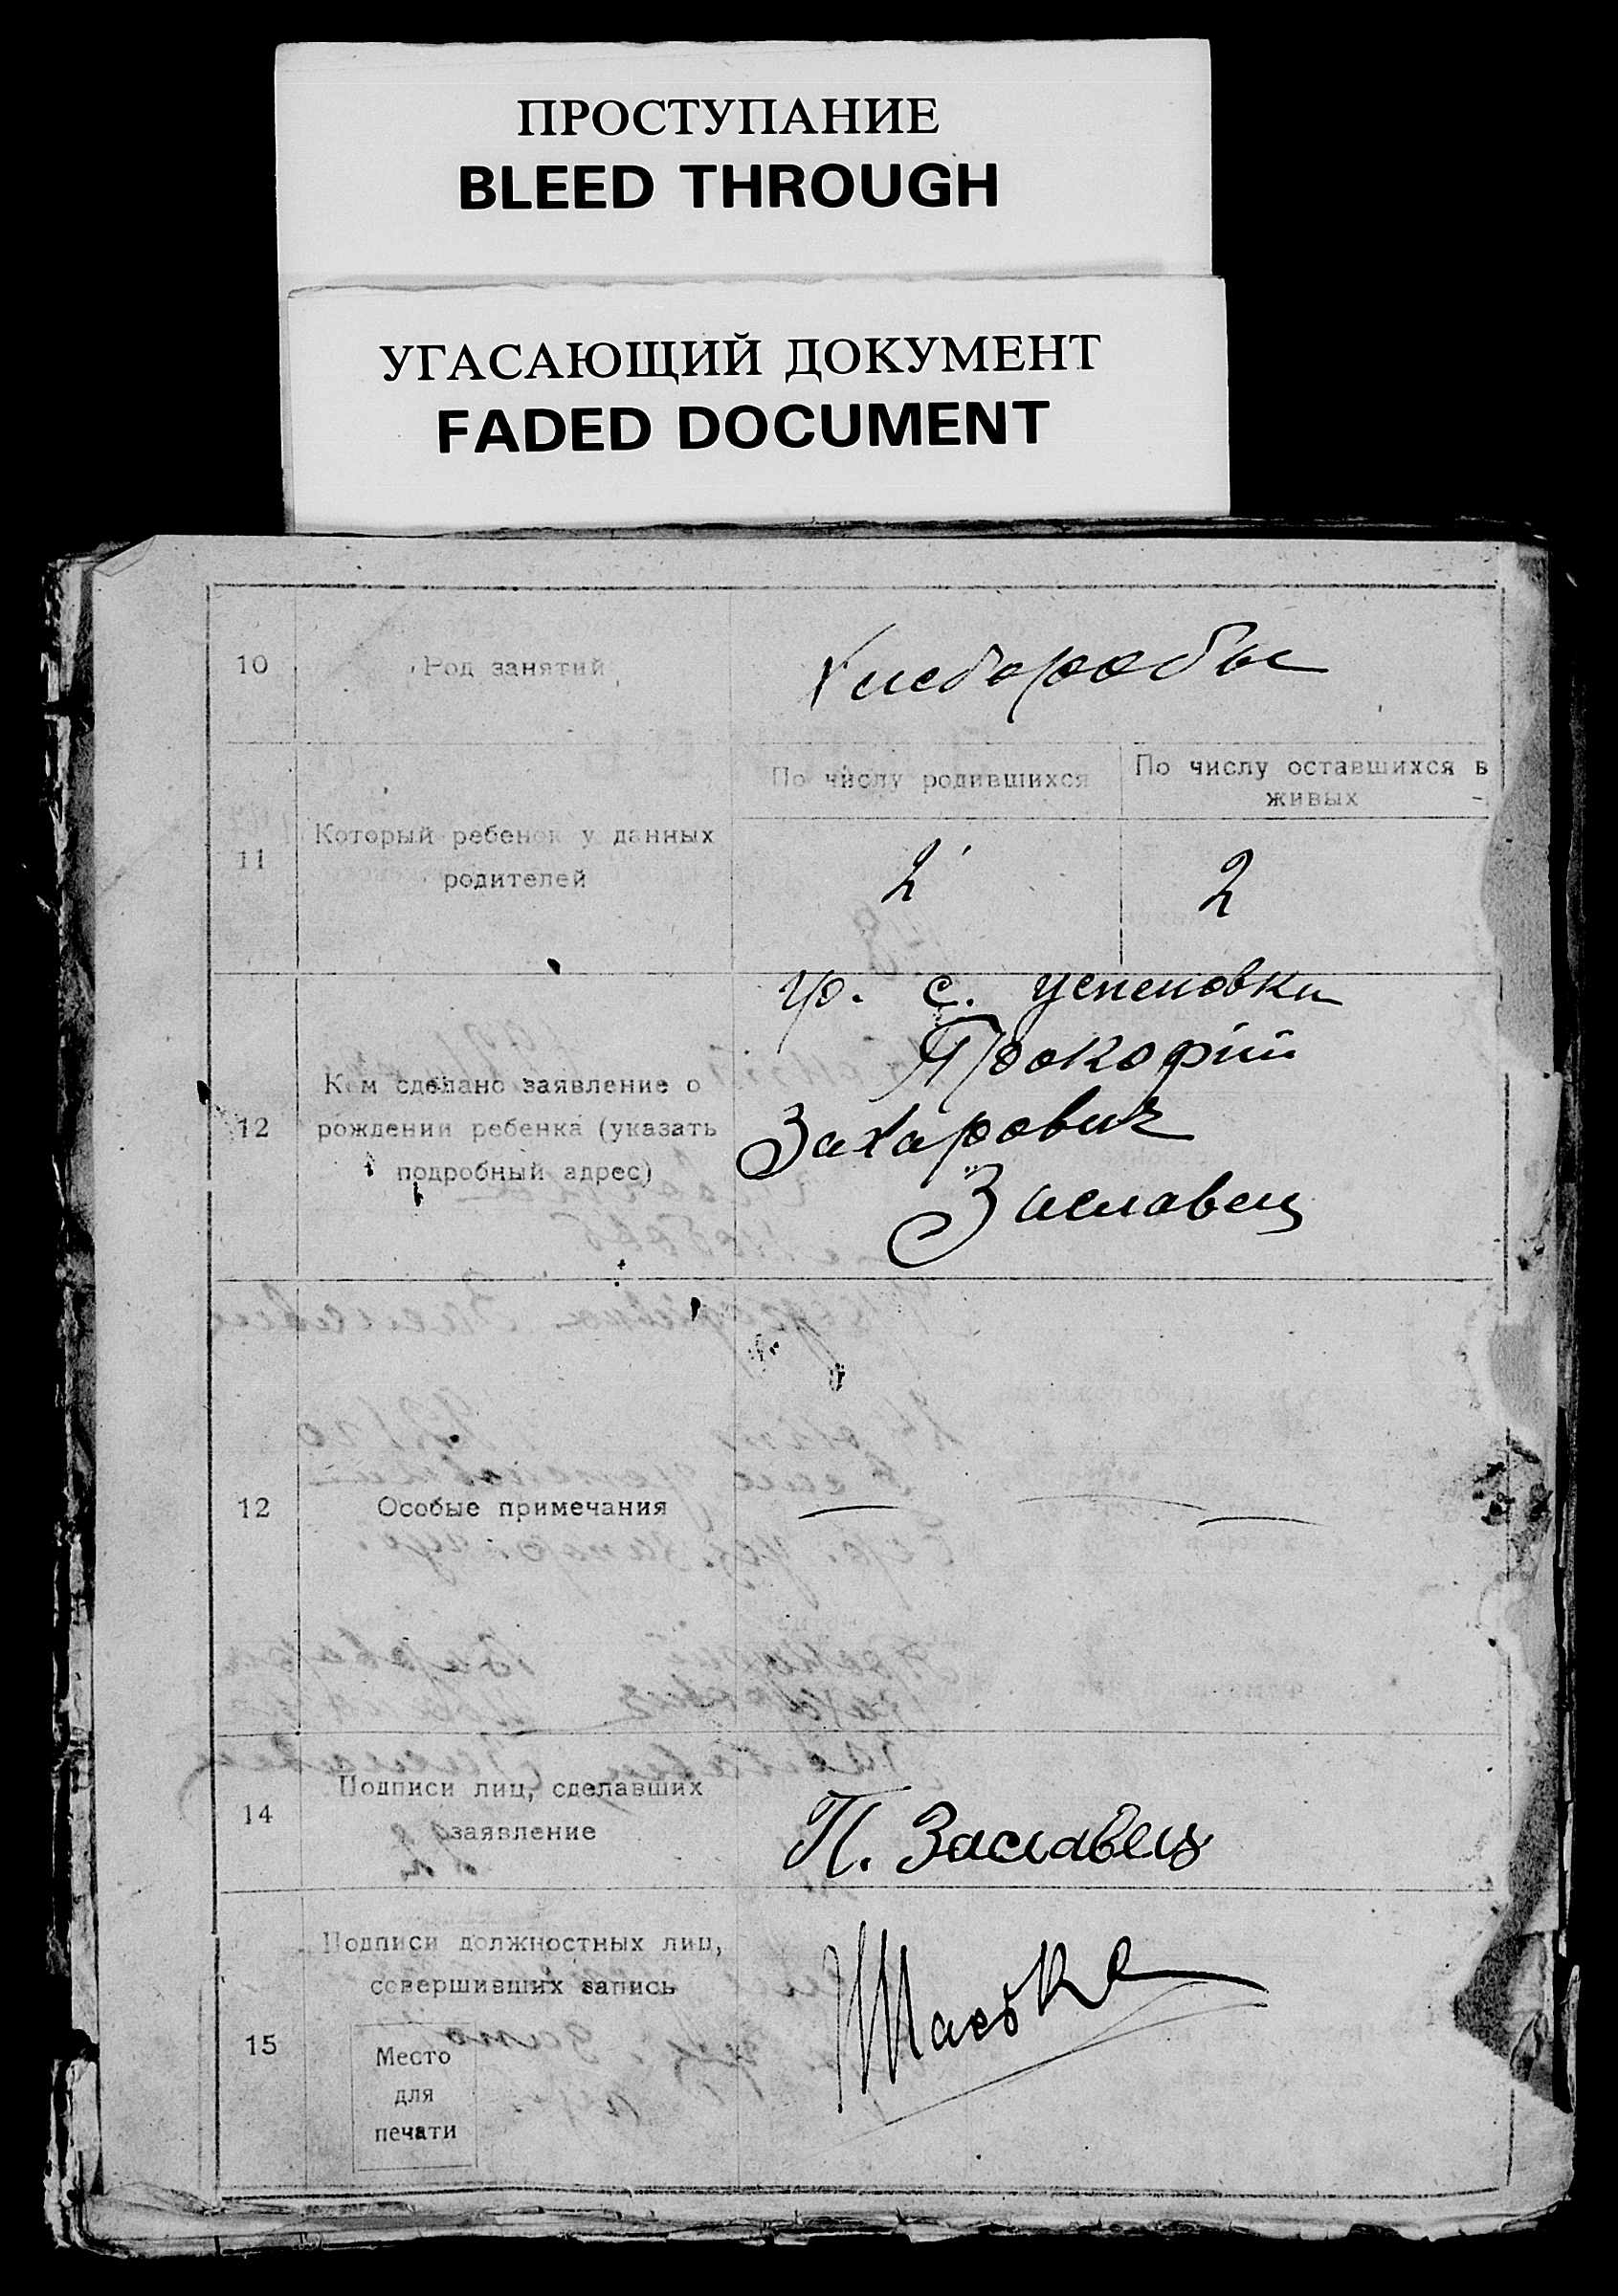 ПРОСТУПАНИЕ
BLEED THROUGH
УГАСАЮЩИЙ ДОКУМЕНТ
FADED DOCUMENT
10 Род занятий Хлеборобы
По числу родившихся По числу оставшихся в
живых
11 Который ребенок у данных
родителей
2 2
гр. с. Успеновки
Прокофій
Захарович
Заславец
12 Кем сделано заявление о
рождении ребенка (указать
подробный адрес)
12 Особые примечания — — —
14 Подписи лиц, сделавших
заявление
П. Заславец
15 Подписи должностных лиц,
совершивших запись
Место
для
печати